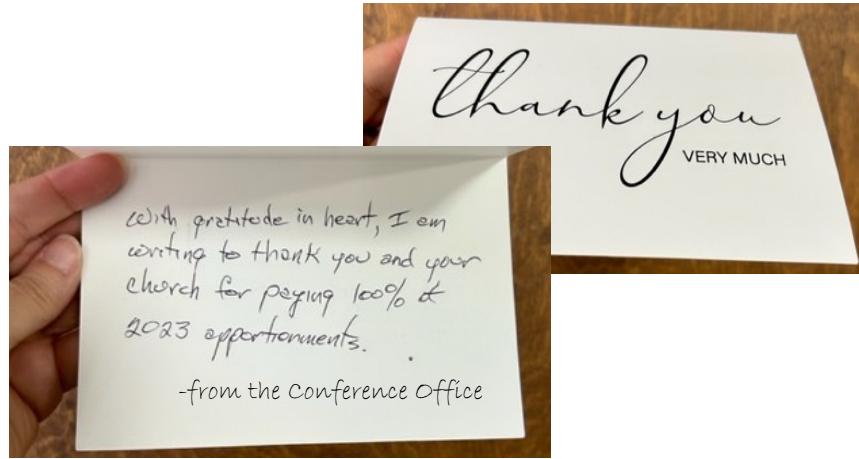 thank you
VERY MUCH
With gratitude in heart, I am
writing to thank you and your
church for paying 100% of
2023 apportionments.
-from the Conference Office